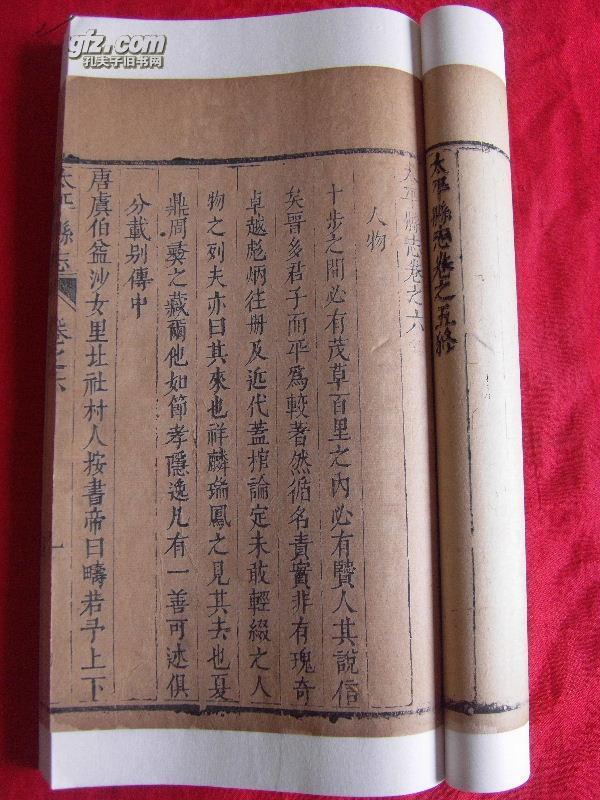 gfz.com
孔夫子旧书网
太平縣志卷之五終
太平縣志卷之六
人物
十步之間必有茂草百里之內必有賢人其說信
矣晉多君子而平爲較著然循名責實非有瑰奇
卓越彪炳往册及近代蓋棺論定未敢輕綴之人
物之列夫亦曰其來也祥麟瑞鳳之見其去也夏
鼎周彝之藏爾他如節孝隱逸凡有一善可述俱
分載别傳中
唐虞伯益沙女里北社村人按書帝曰疇若予上下
太平縣志
卷之六
一